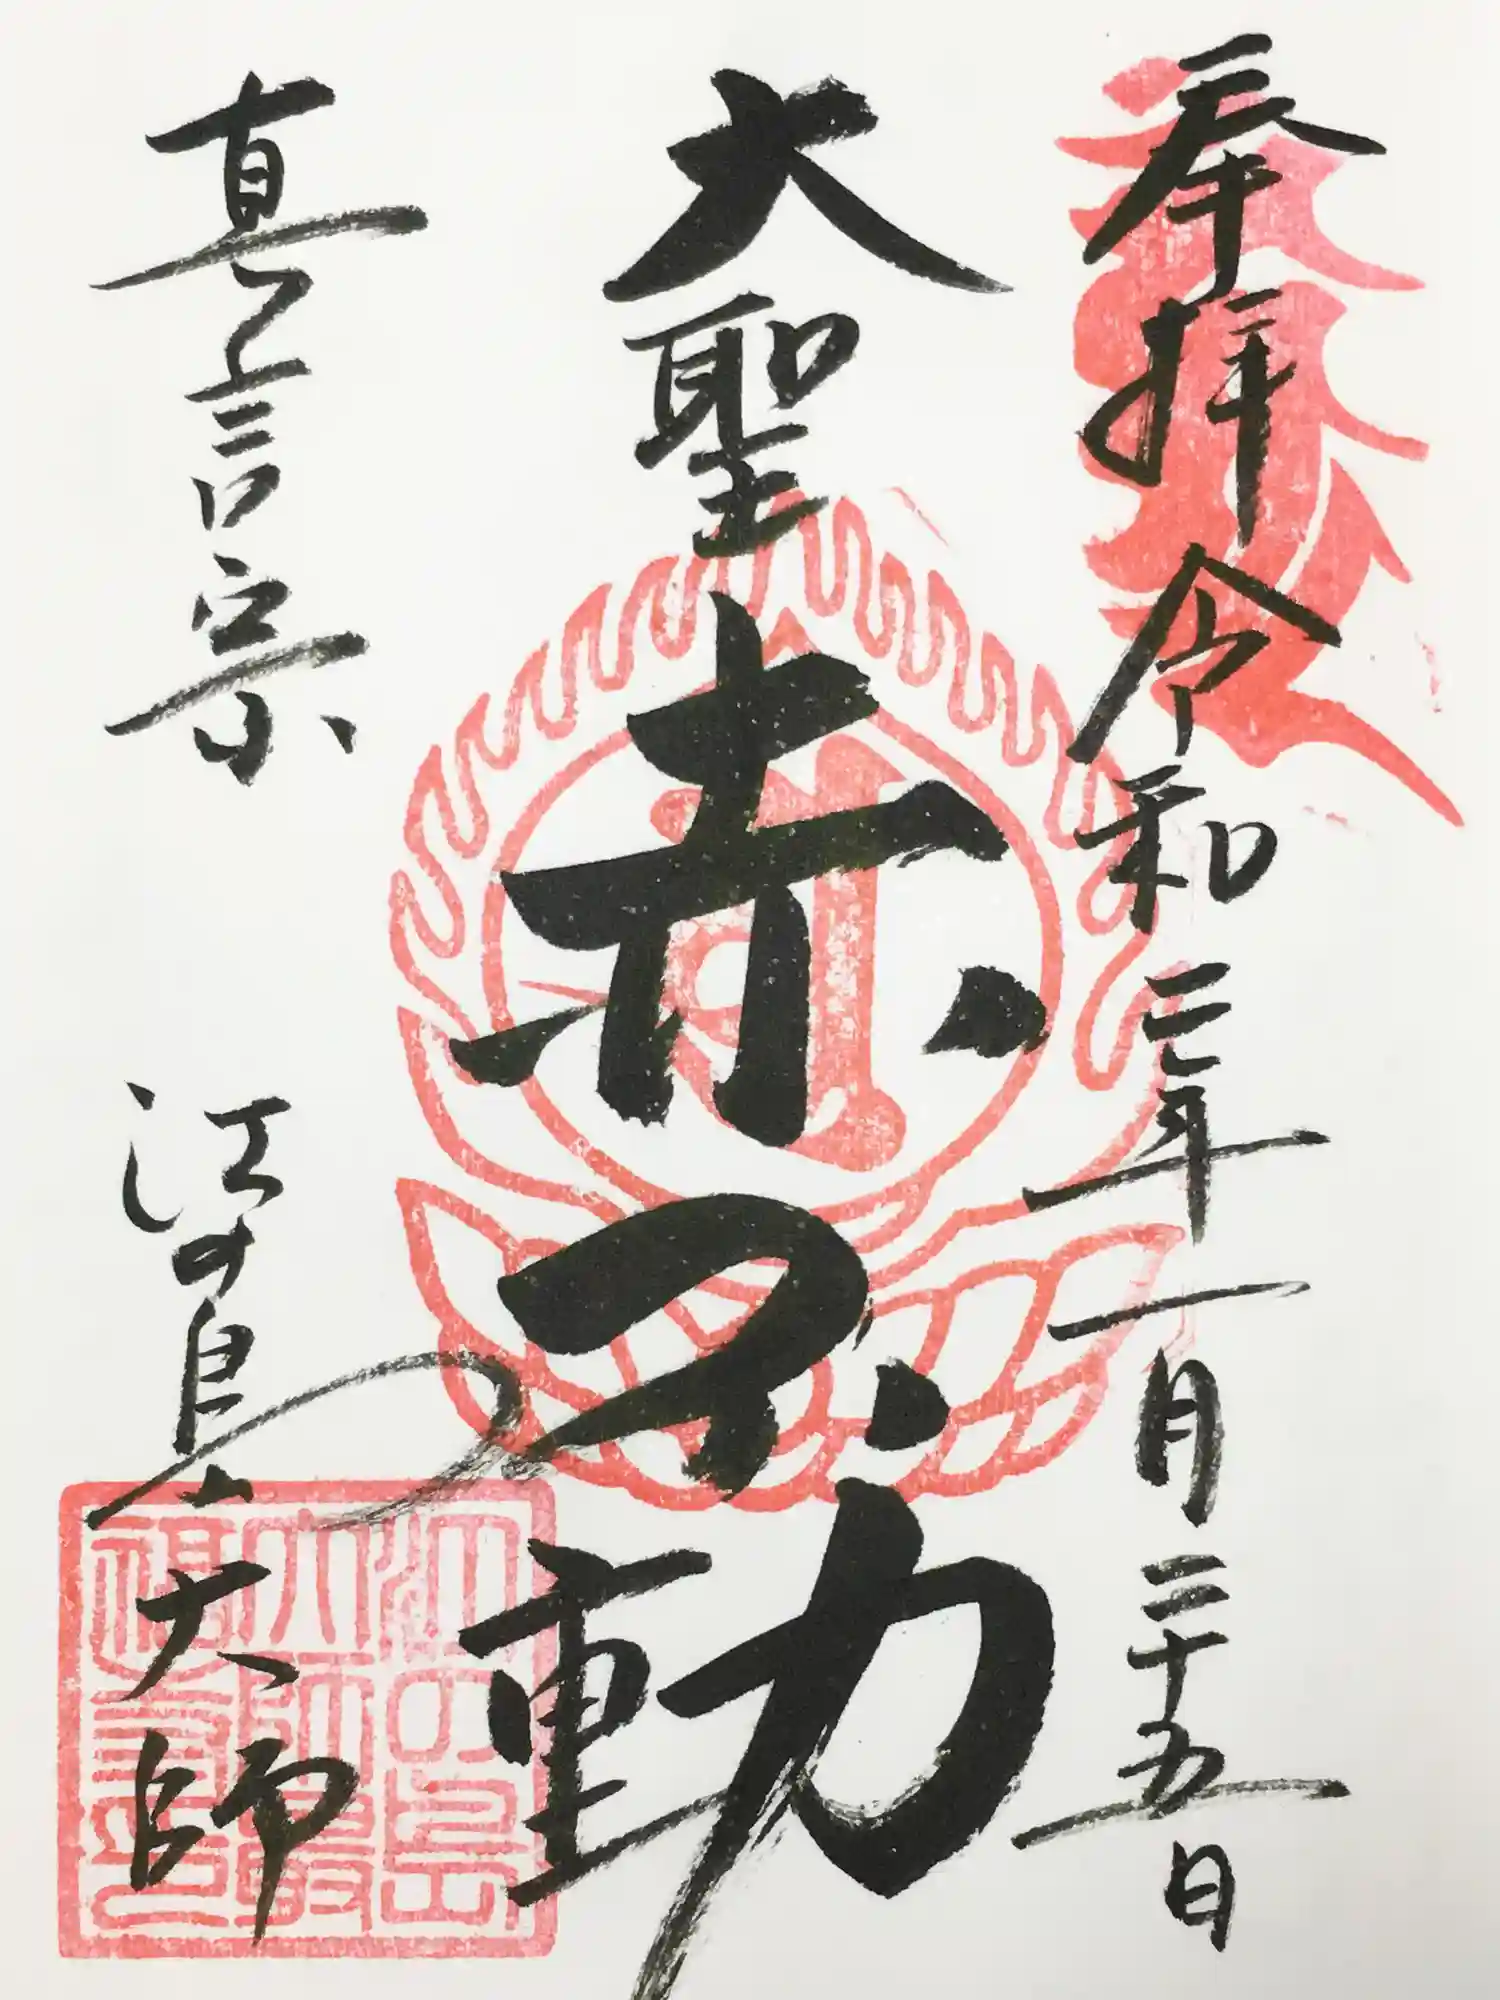 奉拝 令和三年一月二十五日
大聖赤不動
真言宗 江の島大師